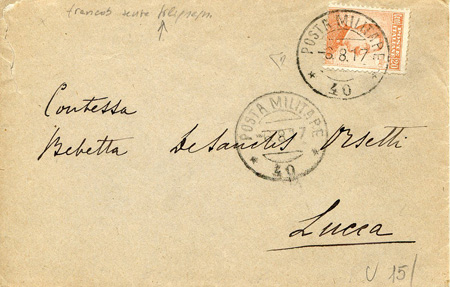 francob senza
POSTA MILITARE
8.8.17
40
POSTA MILITARE
40
Contessa
Bebetta De Sanctis Orsetti
Lucca
V 15/